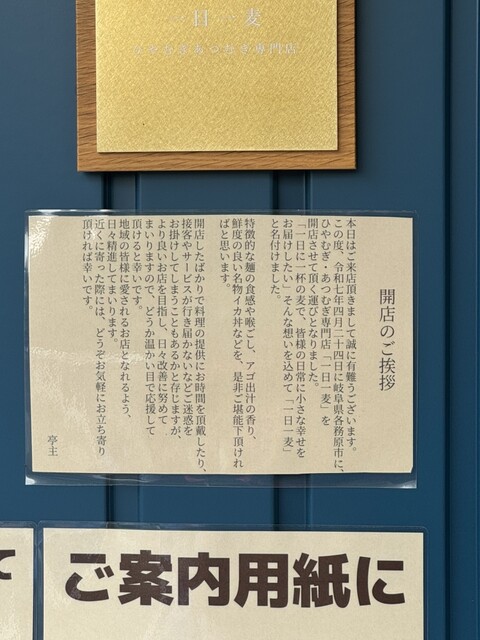 一日一麦
ひやむぎあつむぎ専門店
開店のご挨拶
本日はご来店頂きまして誠に有難うございます。
この度、令和七年四月二十四日に岐阜県各務原市に、
ひやむぎ・あつむぎ専門店「一日一麦」を
開店させて頂く運びとなりました。
「一日に一杯の麦で、皆様の日常に小さな幸せを
お届けしたい」そんな想いを込めて「一日一麦」
と名付けました。
特徴的な麺の食感や喉ごし、アゴ出汁の香り、
鮮度の良い名物イカ丼などを、是非ご堪能下頂けれ
ばと思います。
開店したばかりで料理の提供にお時間を頂戴したり、
接客やサービスが行き届かないなどご迷惑を
お掛けしてしまうこともあるかと存じますが、
より良いお店を目指し、日々改善に努めて
まいりますので、どうか温かい目で応援して
頂けると幸いです。
地域の皆様に愛されるお店となれるよう、
日々精進してまいります。
近くに寄った際には、どうぞお気軽にお立ち寄り
頂ければ幸いです。
亭主
て
ご案内用紙に